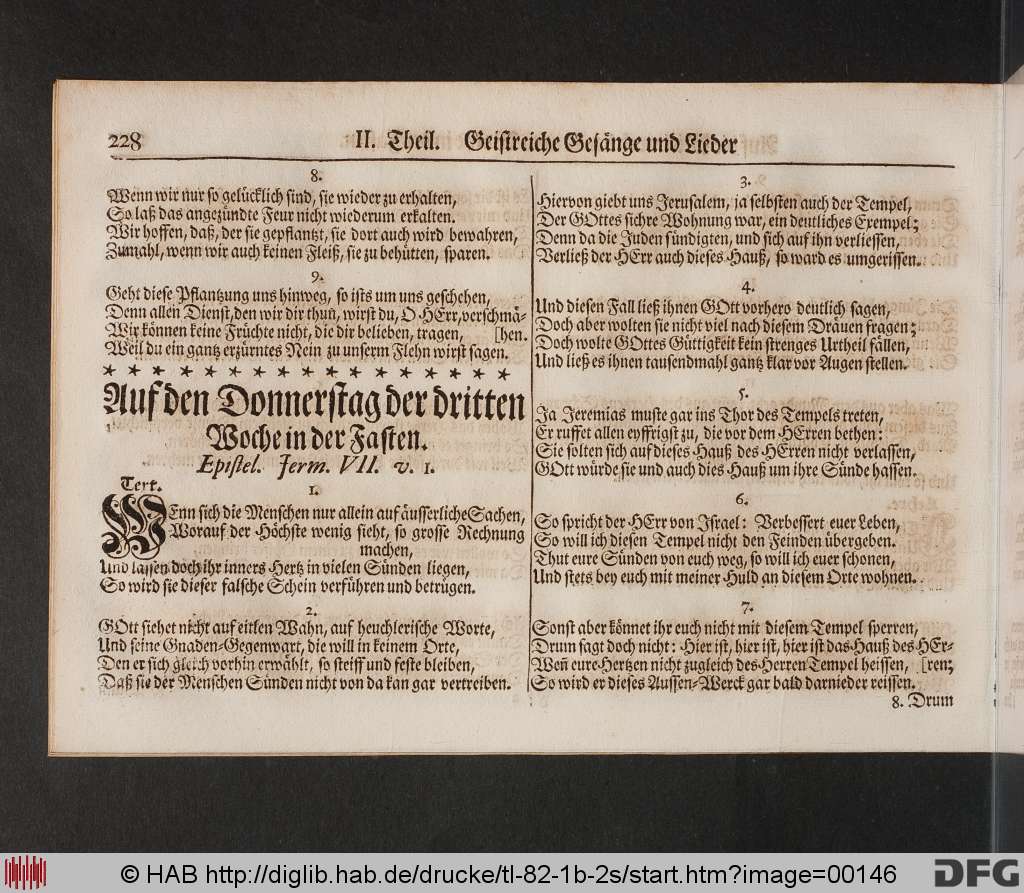 228
II. Theil. Geistreiche Gesänge und Lieder
8.
Wenn wir nur so gelücklich sind, sie wieder zu erhalten,
So laß das angezündte Feur nicht wiederum erkalten.
Wir hoffen, daß, der sie gepflantzt, sie dort auch wird bewahren,
Zumahl, wenn wir auch keinen Fleiß, sie zu behütten, sparen.
9.
Geht diese Pflantzung uns hinweg, so ists um uns geschehen,
Denn allen Dienst, den wir dir thun, wirst du, O HErr, verschmä-
Wir können keine Früchte nicht, die dir belieben, tragen, [hen.
Weil du ein gantz erzürntes Nein zu unserm Flehn wirst sagen.
* * * * * * * * * * * * * * * * * *
Auf den Donnerstag der dritten
Woche in der Fasten.
Epistel. Jerm. VII. v. 1.
Text.
1.
WEnn sich die Menschen nur allein auf äusserliche Sachen,
Worauf der Höchste wenig sieht, so grosse Rechnung
machen,
Und lassen doch ihr inners Hertz in vielen Sünden liegen,
So wird sie dieser falsche Schein verführen und betrügen.
2.
GOtt siehet nicht auf eitlen Wahn, auf heuchlerische Worte,
Und seine Gnaden-Gegenwart, die will in keinem Orte,
Den er sich gleich vorhin erwählt, so steiff und feste bleiben,
Daß sie der Menschen Sünden nicht von da kan gar vertreiben.
3.
Hiervon giebt uns Jerusalem, ja selbsten auch der Tempel,
Der GOttes sichre Wohnung war, ein deutliches Exempel;
Denn da die Juden sündigten, und sich auf ihn verliessen,
Verließ der HErr auch dieses Hauß, so ward es umgerissen.
4.
Und diesen Fall ließ ihnen GOtt vorhero deutlich sagen,
Doch aber wolten sie nicht viel nach diesem Dräuen fragen;
Doch wolte GOttes Güttigkeit kein strenges Urtheil fällen,
Und ließ es ihnen tausendmahl gantz klar vor Augen stellen.
5.
Ja Jeremias muste gar ins Thor des Tempels treten,
Er ruffet allen eyffrigst zu, die vor dem HErren bethen:
Sie solten sich auf dieses Hauß des HErren nicht verlassen,
GOtt würde sie und auch dies Hauß um ihre Sünde hassen.
6.
So spricht der HErr von Israel: Verbessert euer Leben,
So will ich diesen Tempel nicht den Feinden übergeben.
Thut eure Sünden von euch weg, so will ich euer schonen,
Und stets bey euch mit meiner Huld an diesem Orte wohnen.
7.
Sonst aber könnet ihr euch nicht mit diesem Tempel sperren,
Drum sagt doch nicht: Hier ist, hier ist, hier ist das Hauß des HEr-
Weñ eure Hertzen nicht zugleich des Herren Tempel heissen, [ren;
So wird er dieses Aussen-Werck gar bald darnieder reissen.
8. Drum
© HAB http://diglib.hab.de/drucke/tl-82-1b-2s/start.htm?image=00146
DFG